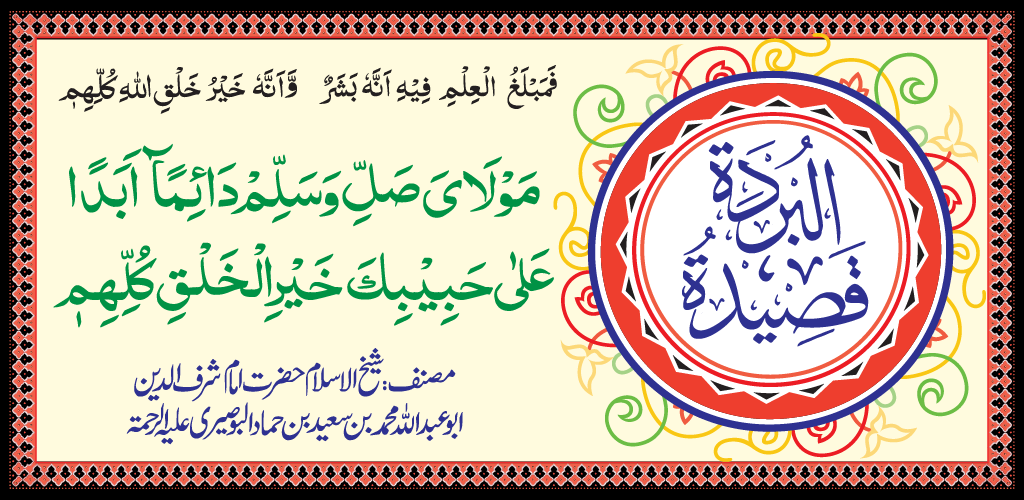 فَمَبْلَغُ الْعِلْمِ فِيْهِ اَنَّهٗ بَشَرٌ وَّاَنَّهٗ خَيْرُ خَلْقِ اللهِ كُلِّهِمٖ
مَوْلَاىَ صَلِّ وَسَلِّمْ دَائِمًا اَبَدًا
عَلٰى حَبِيْبِكَ خَيْرِ الْخَلْقِ كُلِّهِمٖ
مصنف: شیخ الاسلام حضرت امام شرف الدین
ابو عبد اللہ محمد بن سعید بن حماد البوصیری علیہ الرحمۃ
البُردَة
قَصِيدَةُ